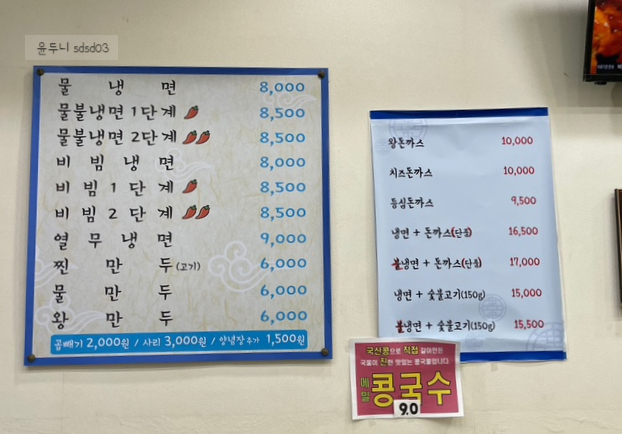 윤두니 sdsd03
물 냉 면 8,000
물불냉면 1단계 8,500
물불냉면 2단계 8,500
비 빔 냉 면 8,000
비 빔 1 단 계 8,500
비 빔 2 단 계 8,500
열 무 냉 면 9,000
찐 만 두 (고기) 6,000
물 만 두 6,000
왕 만 두 6,000
곱빼기 2,000원 / 사리 3,000원 / 양념장추가 1,500원
왕돈까스 10,000
치즈돈까스 10,000
등심돈까스 9,500
냉면 + 돈까스(단품) 16,500
불냉면 + 돈까스(단품) 17,000
냉면 + 숯불고기(150g) 15,000
불냉면 + 숯불고기(150g) 15,500
국산콩으로 직접 갈아만든
국물이 진한 맛있는 콩국물입니다
메밀 콩국수
9.0